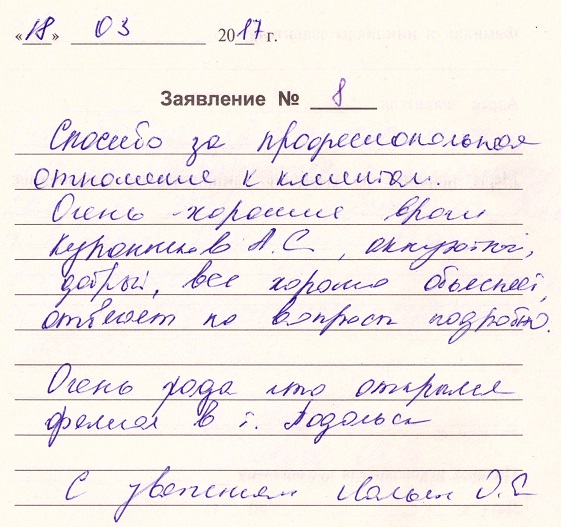 «18» 03 2017 г.
Заявление № 8
Спосибо за професиональноя
отношение к клиентам.
Очень хорошие врачи
А.С, аккуратный,
добрый, все хорошо обьясняет,
отвечает на вопросы подробно.
Очень рада что открылся
филиал в г. Подольск
С уважением